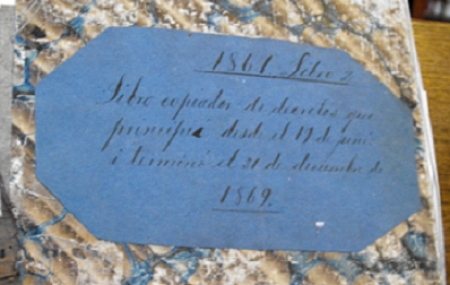 1861. Libro 2
Libro copiador de decretos que
principia desde el 19 de juni
i termina el 21 de diciembre de
1869.